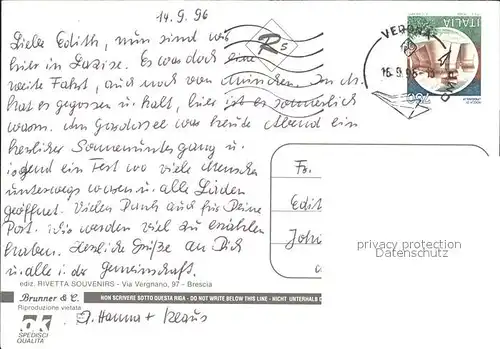 14.9.96
Liebe Edith, nun sind wir
hier in Lazise. Es war doch eine
weite Fahrt, auch noch von München. In M.
hat es gegossen u. kalt, hier ist es sommerlich
warm. Am Gardasee war heute Abend ein
herrlicher Sonnenuntergang u.
irgend ein Fest wo viele Menschen
unterwegs waren u. alle Läden
geöffnet. Vielen Dank auch für Deine
Post. Wir werden viel zu erzählen
haben. Herzliche Grüße an Dich
u. alle i. der Gemeinschaft.
R S
VERONA
16.9.96
ITALIA
Fr.
Edit
Joh
photo copyright protection
Datenschutz
ediz. RIVETTA SOUVENIRS - Via Vergnano, 97 - Brescia
Brunner & C.
NON SCRIVERE SOTTO QUESTA RIGA - DO NOT WRITE BELOW THIS LINE - NICHT UNTERHALB D
Riproduzione vietata
OK
SPEDISCI
QUALITÀ
Hanna + Klaus